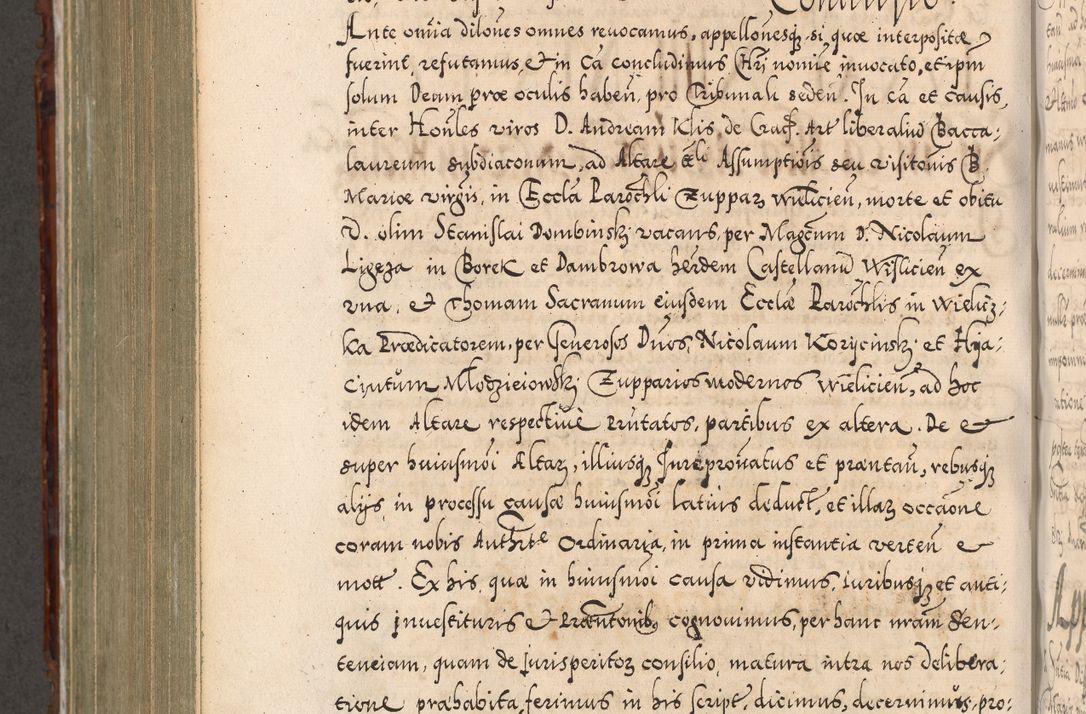 Ante omnia dilones omnes reuocamus, appellonesq́ si quæ interpositæ
fuerint, refutamus, et in Ca concludimus Chri nomine inuocato, et ipm
solum Deum præ oculis haben̄, pro Tribunali seden̄. In ca et causis,
inter Honles viros D. Andream Klis de Crac. Art liberaliū Bacca:
laureum subdiaconum, ad Altare tli Assumptiois seu visitonis B.
Mariæ virgis, in Eccla Parochli Zuppar wielicien̄, morte et obitu
D. olim Stanislai Dombinski vacans, per Magcum D. Nicolaum
Ligęza in Borek et Dambrowa herdem Castellanū Wislicien̄ ex
vna, et Thomam Sacranum eiusdem Ecclæ Parochlis in Wielicz:
ka Prædicatorem, per Generosos Dnos, Nicolaum Korycinski et Hya:
cintum Młodzieiowski Zupparios modernos wielicien̄, ad hoc
idem Altare respectiue Pntatos, partibus ex altera. De et
super huiusmoi Altar, illiusq́ Jure pronatus et præntan̄, rebusq́
alijs in processu causæ huiusmoi latius deduct, et illar occaone
coram nobis Authte Ordinaria, in prima instantia verten̄ et
mott. Ex his, quæ in huiusmoi causa vidimus, iuribusq́ et anti:
quis inuestituris et Præntonib, cognouimus, per hanc nram Sen:
tenciam, quam de Jurisperitor consilio, matura intra nos delibera:
tione præhabita, ferimus in his script, dicimus, decernimus, pro: